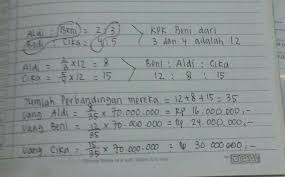 Aldi : Beni = 2 : 3 } KPK Beni dari
Beni : Cika = 4 : 5 } 3 dan 4 adalah 12
Aldi = 2/3 x 12 = 8 } Beni : Aldi : Cika
Cika = 5/4 x 12 = 15 } 12 : 8 : 15
Jumlah Perbandingan mereka = 12 + 8 + 15 = 35
uang Aldi = 8/35 x 70.000.000 = Rp 16.000.000,-
uang Beni = 12/35 x 70.000.000 = Rp 24.000.000,-
uang Cika = 15/35 x 70.000.000 = Rp 30.000.000,-